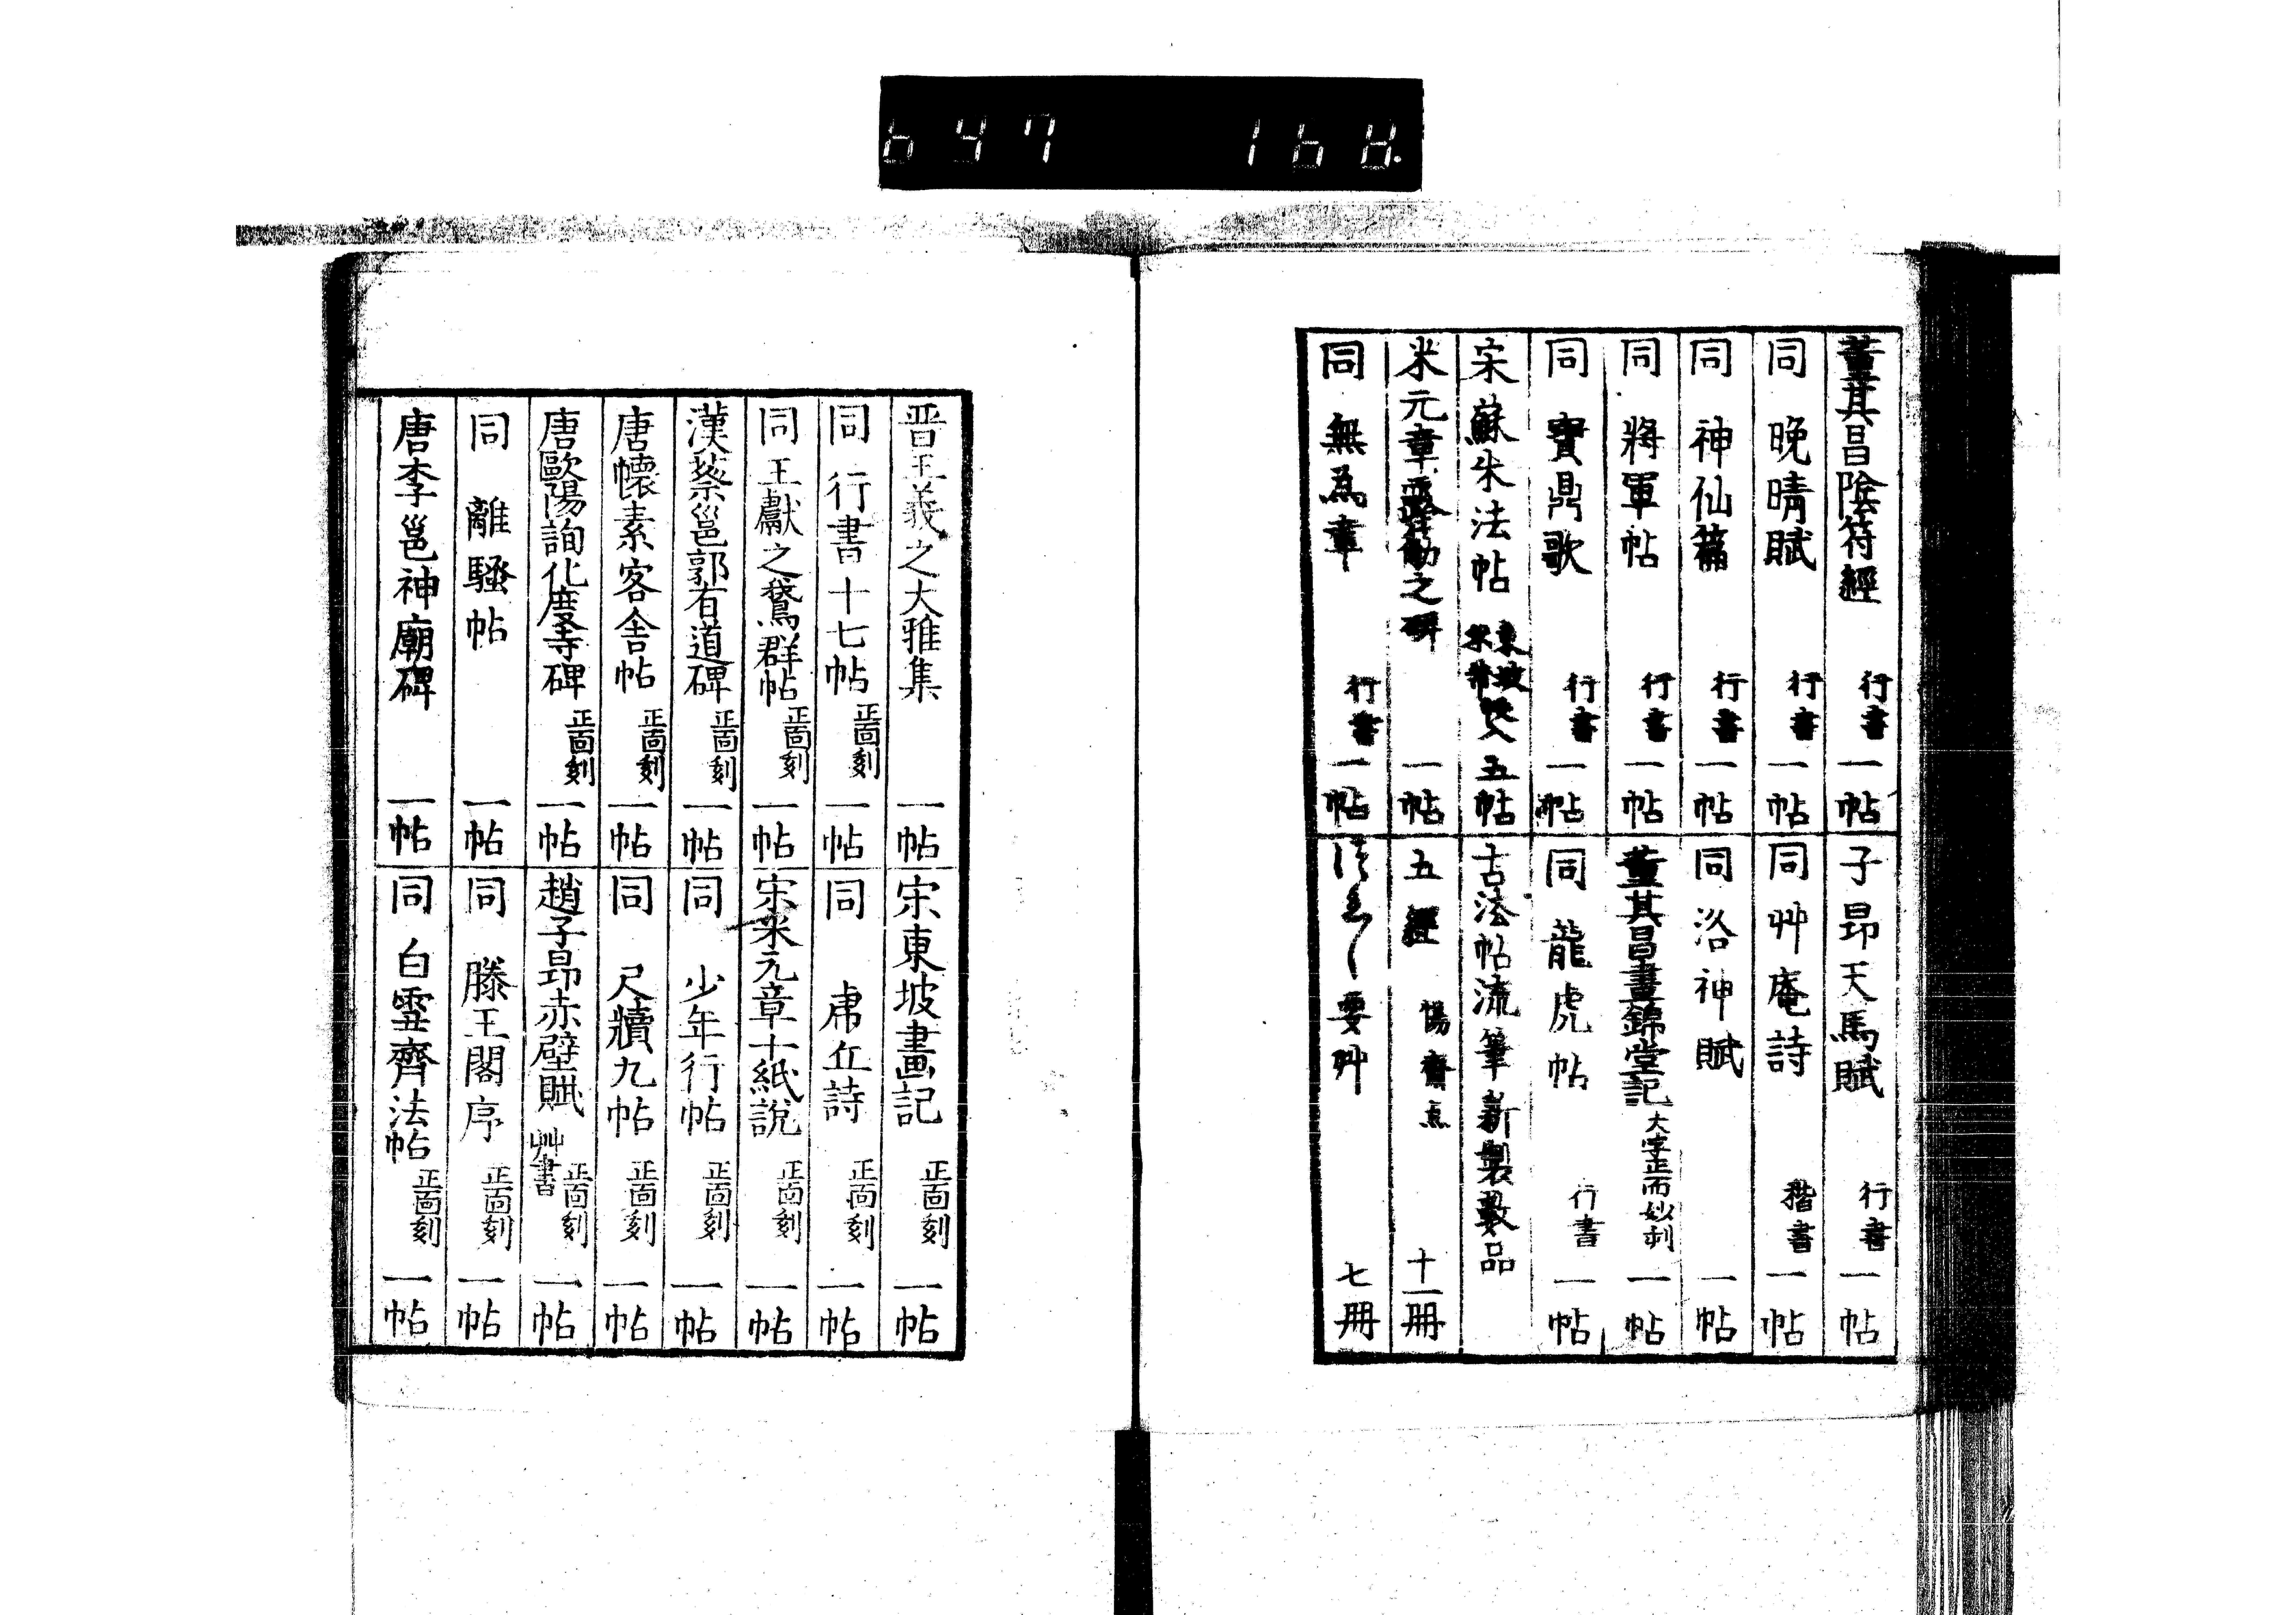 647 168
董其昌陰符經 行書 一帖
同 晩晴賦 行書 一帖
同 神仙篇 行書 一帖
同 將軍帖 行書 一帖
同 寶鼎歌 行書 一帖
宋蘇朱法帖 東坡 米芾 五帖
米元章露筋之碑 一帖
同 無為章 行書 一帖
子昂天馬賦 行書 一帖
同 艸庵詩 楷書 一帖
同 洛神賦 一帖
董其昌晝錦堂記 大字正面妙刻 一帖
同 龍虎帖 行書 一帖
古法帖流筆新製數品
五經 惕齋点 十一冊
要艸 七冊
晋王義之大雅集 一帖
同 行書十七帖 正面刻 一帖
同 王獻之鵞群帖 正面刻 一帖
漢蔡邕郭有道碑 正面刻 一帖
唐懷素客舎帖 正面刻 一帖
唐歐陽詢化度寺碑 正面刻 一帖
同 離騷帖 一帖
唐李邕神廟碑 一帖
宋東坡畫記 正面刻 一帖
同 虎丘詩 正面刻 一帖
宋米元章十紙說 正面刻 一帖
同 少年行帖 正面刻 一帖
同 尺牘九帖 正面刻 一帖
趙子昂赤壁賦 艸書 正面刻 一帖
同 滕王閣序 正面刻 一帖
同 白雲齊法帖 正面刻 一帖